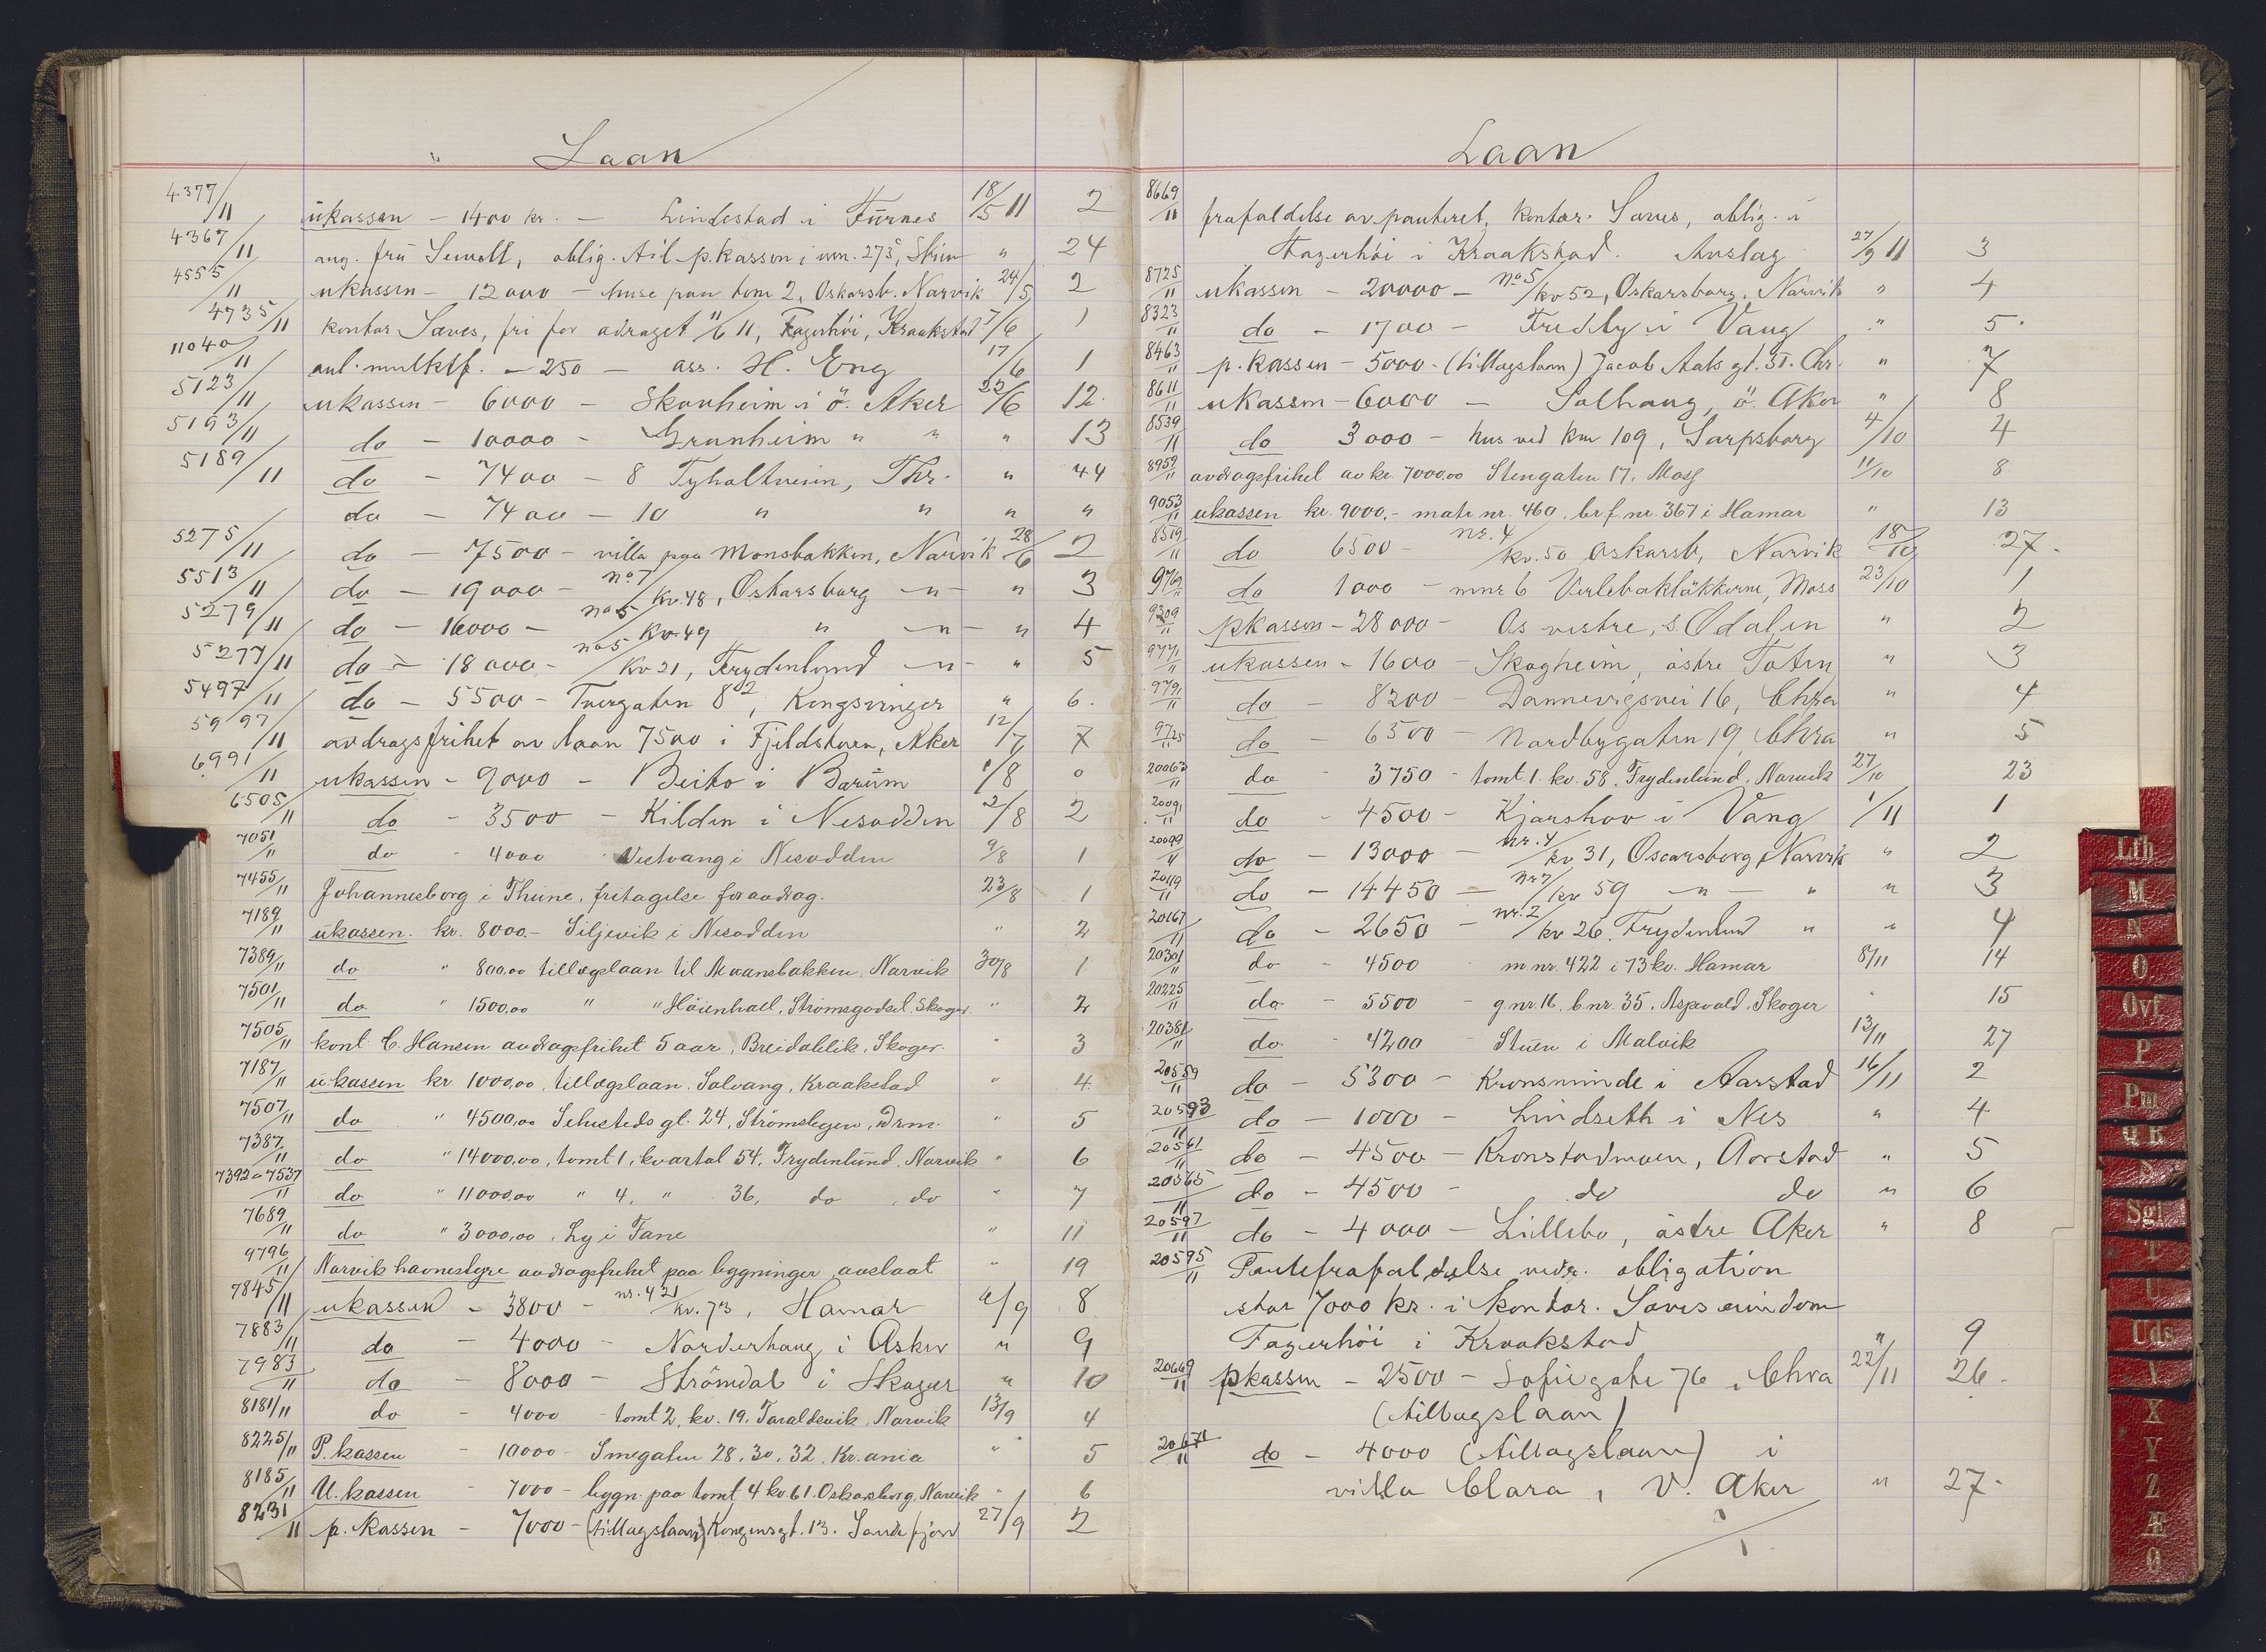 Laan
4377/11 ukassen - 1400 kr. - Lindestad i Fürnes 18/5 11 2
4367/11 ang. frü Sewell, oblig. til p.kassen i mn. 275, Skien " 24
4555/11 ukassen - 12000 - huse paa tomt 2, Oskarsb. Narvik 24/5 2
4735/11 kontor Sæves, fri for adraget 11/6 11, Fagerhöi, Kraakstad 7/6 1
11040/11 anl. mulktf. - 250 - ass. H. Eng 17/6 1
5123/11 ukassen - 6000 - Skauheim i ö. Aker 22/6 12.
5193/11 do - 10000 - Granheim " " " 13
5189/11 do - 7400 - 8 Tyholtveien, Thr. " 44
do - 7400 - 10 " " " "
5275/11 do - 7500 - villa paa Monsbakken, Narvik 28/6 2
5513/11 do - 19000 - no 7/kv.48, Oskarsborg -"- " 3
5279/11 do - 16000 - no 5/kv.49 " -"- " 4
5277/11 do - 18000 - no 5/kv 21, Frydenlund -"- " 5
5497/11 do - 5500 - Tvergaten 8², Kongsvinger " 6.
5997/11 avdragsfrihet av laan 7500 i Fjeldstuen, Aker 12/7 7
6991/11 ukassen - 9000 - Beito i Barüm 1/8 0
6505/11 do - 3500 - Kilden i Nesodden 2/8 2
7051/11 do - 4000 - Vestvang i Nesodden 9/8 1
7455/11 Johannesborg i Thune, fritagelse for avdrag. 23/8 1
7189/11 ukassen. kr. 8000.- Siljevik i Nesodden " 2
7389/11 do " 800,00 tillægslaan til Moansbakken, Narvik 30/8 1
7501/11 do " 1500,00 " " Höienhall, Strömsgodset, Skoger. " 2
7505/11 kont. C. Hansen avdragsfrihet 5 aar, Breidablik, Skoger. " 3
7187/11 u.kassen kr 1000,00, tillægslaan. Solvang, Kraakstad " 4
7507/11 do " 4500,00 Schusteds gt. 24, Strömslegen, Drm. " 5
7387/11 do " 14000,00, tomt 1, kvartal 54, Frydenlünd, Narvik " 6
7392 a 7537/11 do " 11000,00 " 4, " 36, do, do " 7
7689/11 do " 3000,00. Ly i Fane " 11
9796/11 Narvik havnestyre avdragsfrihet paa bygninger avslaat " 19
7845/11 ukassen - 3800 - nr. 421/kv. 73, Hamar 6/9 8
7883/11 do - 4000 - Norderhaug i Asker " 9
7983/11 do - 8000 - Strömdal i Skoger " 10
8181/11 do - 4000 - tomt 2, kv. 19, Taraldsvik, Narvik 13/9 4
8225/11 P. kassen - 10000 - Smegaten 28, 30, 32, Kr.ania " 5
8185/11 U. kassen - 7000 - bygn. paa tomt 4 kv. 61. Oskarsborg, Narvik " 6
8231/11 p. kassen - 7000 - (tillægslaan) Kongensgt. 13. Sandefjord 27/9 2
Laan
8669/11 frafaldelse av panteret, kontor. Sæves, oblig. i
Fagerhöi i Kraakstad. Avslag 27/9 11 3
8725/11 ukassen - 20000 - no 5/kv 52, Oskarsborg, Narvik " 4
8323/11 do - 1700 - Fredly i Vang " 5.
8463/11 p. kassen - 5000 - (tillægslaan) Jacob Aals gt. 31. Chr. " 7
8611/11 ukassen - 6000 - Solhaug, ö. Aker " 8
8539/11 do 3000 - hus ved km 109, Sarpsborg 4/10 4
8959/11 avdragsfrihet av kr. 7000,00 Stengaten 17. Moss 11/10 8
9053/11 ukassen kr. 9000,- matr. nr. 460. brf. nr. 367 i Hamar " 13
8519/11 do 6500 - nr. 4/kv. 50 Oskarsb, Narvik 18/10 27.
9769/11 do 1000 - mnr 6 Verlebakløkkerne, Moss 23/10 1
9209/11 pkassen - 28000 - Os vestre, s. Odalen " 2
9771/11 ukassen - 1600 - Skogheim, östre Toten " 3
9791/11 do - 8200 - Dannevigsvei 16, Chra " 4
9725/11 do - 6500 - Nordbygaten 19, Chra " 5
20063/11 do - 3750 - tomt 1. kv. 58. Frydenlund, Narvik 27/10 23
20091/11 do - 4500 - Kjarshov i Vang 1/11 1
20099/11 do - 13000 - nr. 4/kv 31, Oscarsborg, Narvik " 2
20119/11 do - 14450 - nr 7/kv 59 -"- " " 3
20167/11 do - 2650 - nr. 2/kv 26. Frydenlund " " 4
20301/11 do - 4500 - m.nr. 422 i 73 kv. Hamar 8/11 14
20225/11 do - 5500 - g.nr. 16, b.nr. 35, Aspevold, Skoger " 15
20381/11 do - 4200 - Stüen i Malvik 13/11 27
20559/11 do - 5300 - Kronsminde i Aarstad 16/11 2
20593/11 do - 1000 - Lindseth i Nes " 4
20561/11 do - 4500 - Kronstadmoen, Aarstad " 5
20565/11 do - 4500 - do do " 6
20597/11 do - 4000 - Lillebo, östre Aker " 8
20595/11 Pantefrafaldelse vedr. obligation
stor 7000 kr. i kontor. Sæves eiendom
Fagerhöi i Kraakstad " 9
20669/11 pkassen - 2500 - Sofiegate 76, Chra 22/11 26.
(tillægslaan)
20671/11 do - 4000 (tillægslaan) i
villa Clara, V. Aker " 27.
Lfh
M
N
O
Ovf
P
Pm
Q R
S
Sgl
T
U
Uds
V
X
Y
Z
Æ
Ø